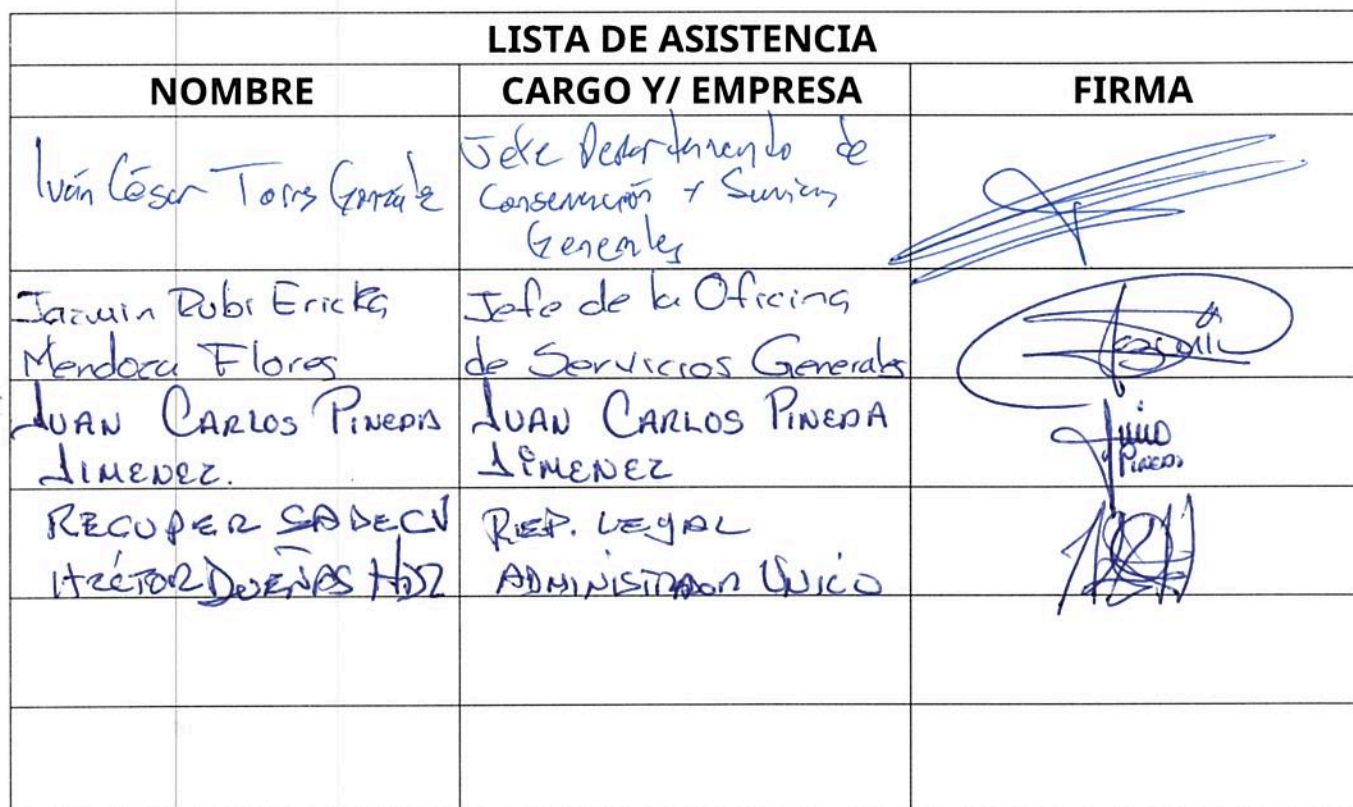 LISTA DE ASISTENCIA
NOMBRE CARGO Y/ EMPRESA FIRMA
Iván César Torres González
Jefe Departamento de
Conservación y Servicios
Generales
Jazmin Rubi Ericka
Mendoza Flores
Jefe de la Oficina
de Servicios Generales
JUAN CARLOS PINEDA
JIMENEZ.
JUAN CARLOS PINEDA
JIMENEZ
PINEDA
RECUPER SADECV
HÉCTOR DUEÑAS HDZ
REP. LEGAL
ADMINISTRADOR ÚNICO